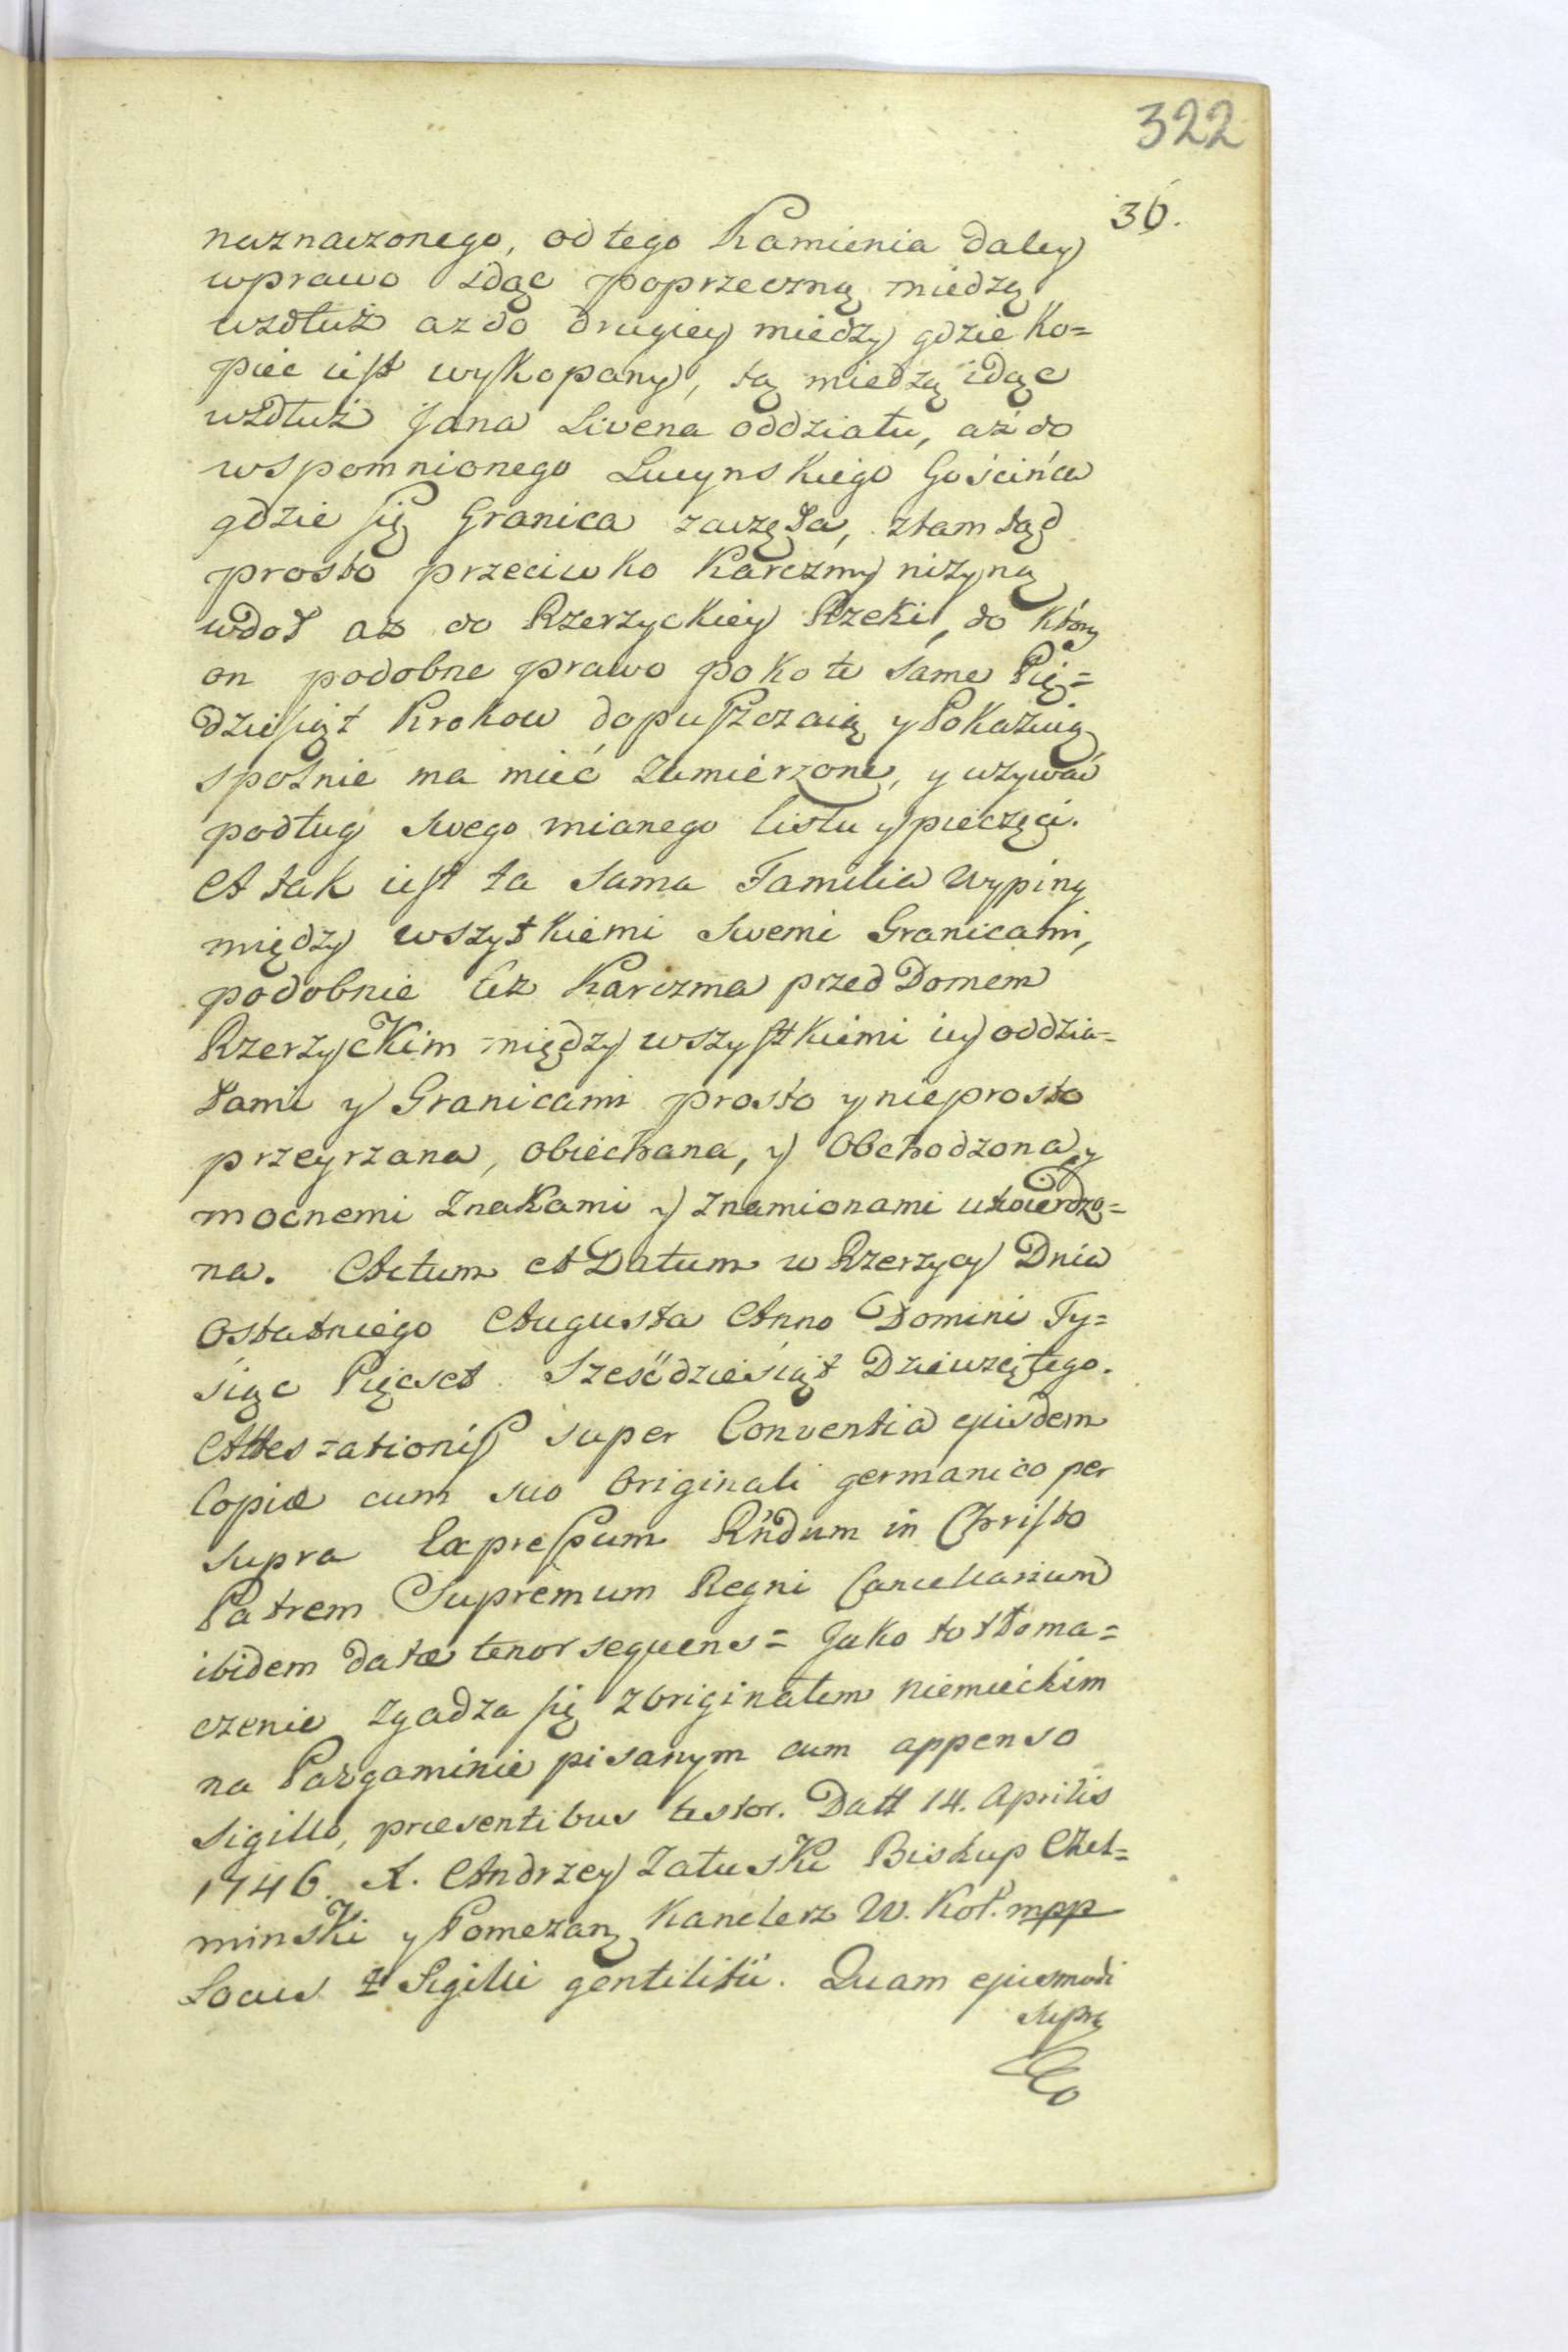 322
36.
naznaczonego, od tego Kamienia daley
wprawo idąc poprzeczną miedzą
wzdłuż az do drugiey miedzy gdzie Ko=
piec iest wykopany, tą miedzą idąc
wzdłuż Jana Livena oddziału, aż do
wspomnionego Lucynskiego Gościńca
gdzie się Granica zaczęła, ztamtąd
prosto przeciwko Karczmy niżyną
wdoł aż do Rzerzyckiey Rzeki, do który
on podobne prawo poko te same Pię=
dziesiąt Krokow dopuszczaią y Pokażuią
spolnie ma mieć zamierzone, y używać
podług swego mianego listu y pieczęci.
A tak iest ta sama Familia Wypiny
między wszytkiemi swemi Granicami,
podobnie tez Karczma przed Domem
Rzerzyckim między wszystkiemi iey oddzia=
łami y Granicami prosto y nieprosto
przeyrzana, obiechana, y Obchodzona, y
mocnemi znakami y znamionami utwierdzo=
na. Actum et Datum w Rzerzycy Dnia
Ostatniego Augusta Anno Domini Ty=
siąc Pięcset Sześćdziesiąt Dziewzętego.
Attestationis super Conventia ejusdem
Copiæ cum suo Originali germanico per
supra Expressum Rndum in Christo
Patrem Supremum Regni Cancellarium
ibidem datæ tenor sequens= Jako to tłoma=
czenie zgadza się z Originałem niemieckim
na Pargaminie pisanym cum appenso
sigillo, præsentibus testor. Datt 14. Aprilis
1746. X. Andrzey Załuski Biskup Cheł=
minski y Pomezan, Kanclerz W. Kor. mpp
Locus Sigilli gentilitii. Quam ejusmodi
supra